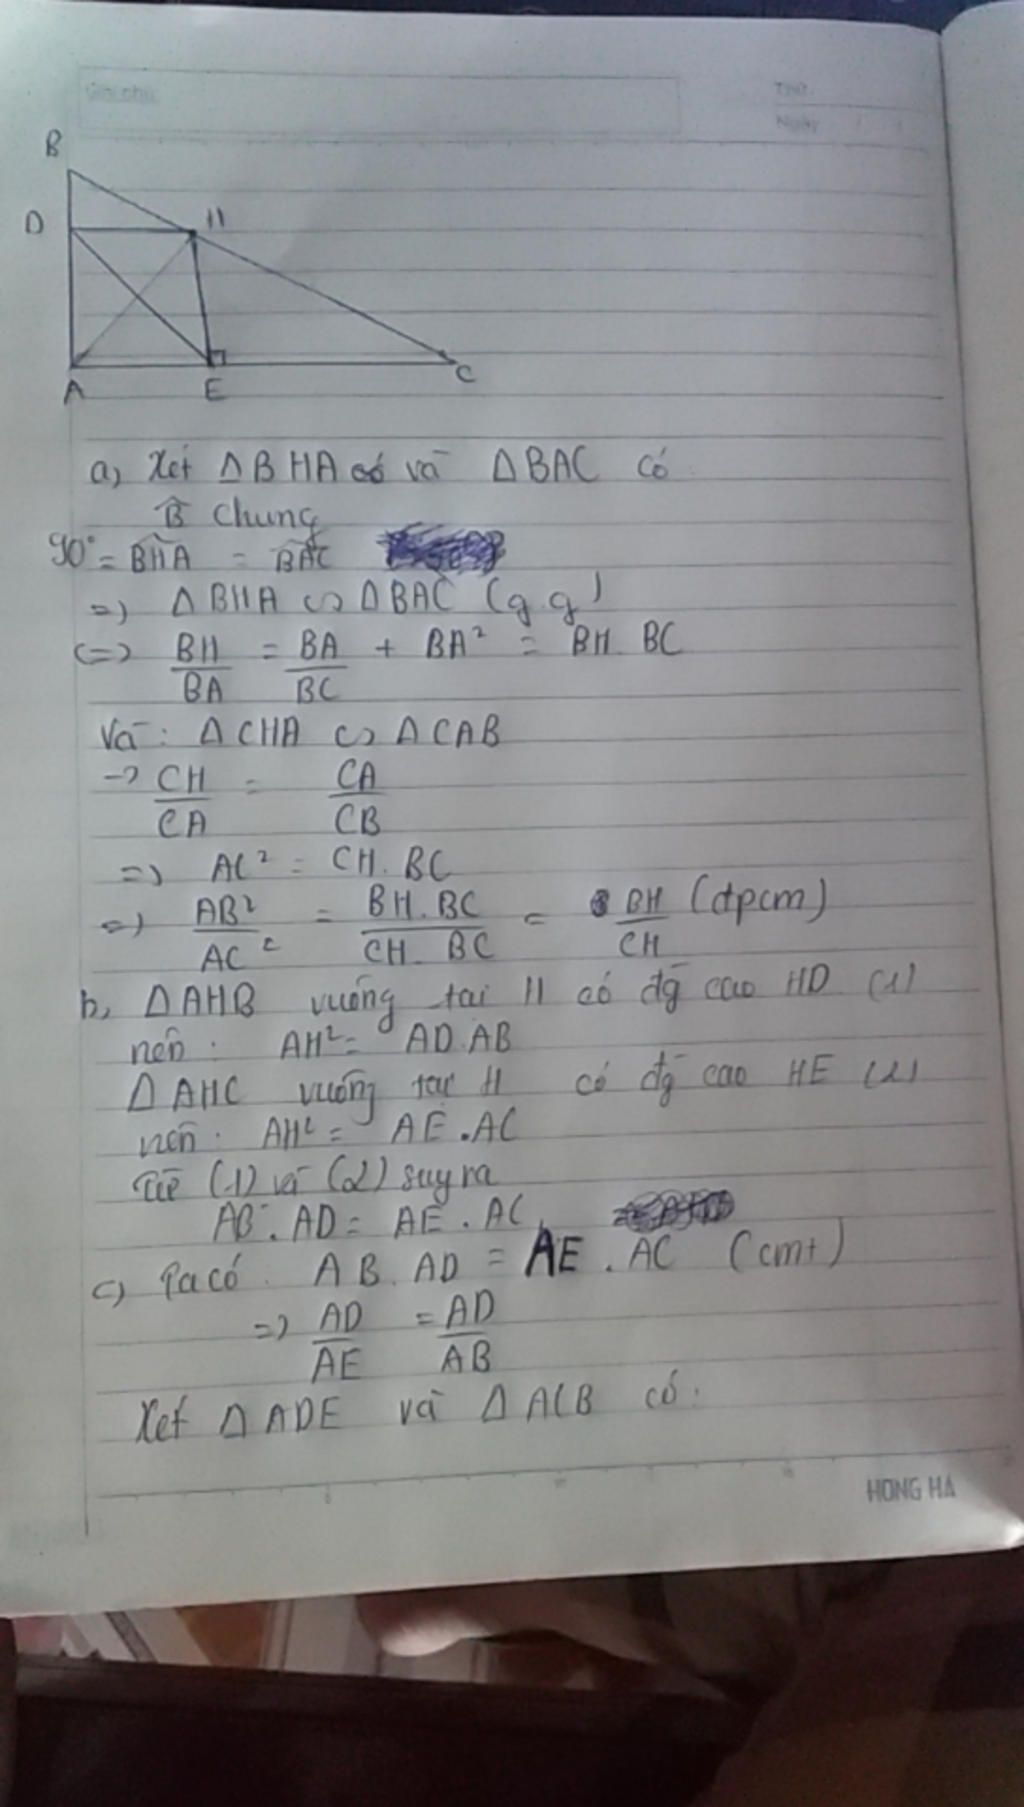 Ghi chú
Thứ.
Ngày / /
B
D H
A E C
a, Xét ΔBHA có và ΔBAC có
B̂ chung
90° = BHA = BAC
=) ΔBHA ∽ ΔBAC (g.g)
(=) BH/BA = BA/BC + BA² = BH. BC
Và: ΔCHA ∽ ΔCAB
-> CH/CA = CA/CB
=) AC² = CH. BC
=) AB²/AC² = BH.BC/CH.BC = BH/CH (đpcm)
b, ΔAHB vuông tại H có đg cao HD (1)
nên: AH² = AD.AB
ΔAHC vuông tại H có đg cao HE (2)
nên: AH² = AE.AC
Từ (1) và (2) suy ra
AB.AD = AE.AC
c) Ta có: AB.AD = AE.AC (cmt)
=) AD/AE = AD/AB
Xét ΔADE và ΔACB có:
HONG HA